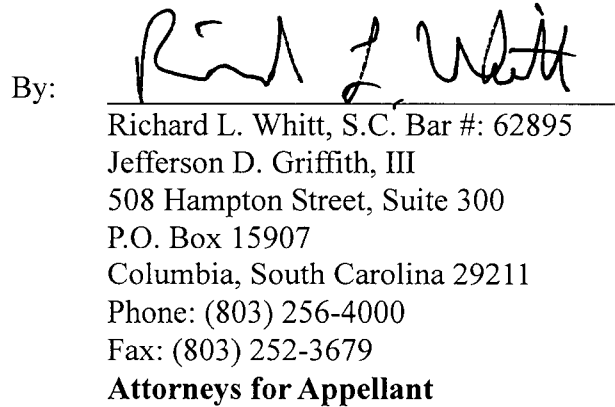 By: Richard L. Whitt
Richard L. Whitt, S.C. Bar #: 62895
Jefferson D. Griffith, III
508 Hampton Street, Suite 300
P.O. Box 15907
Columbia, South Carolina 29211
Phone: (803) 256-4000
Fax: (803) 252-3679
Attorneys for Appellant